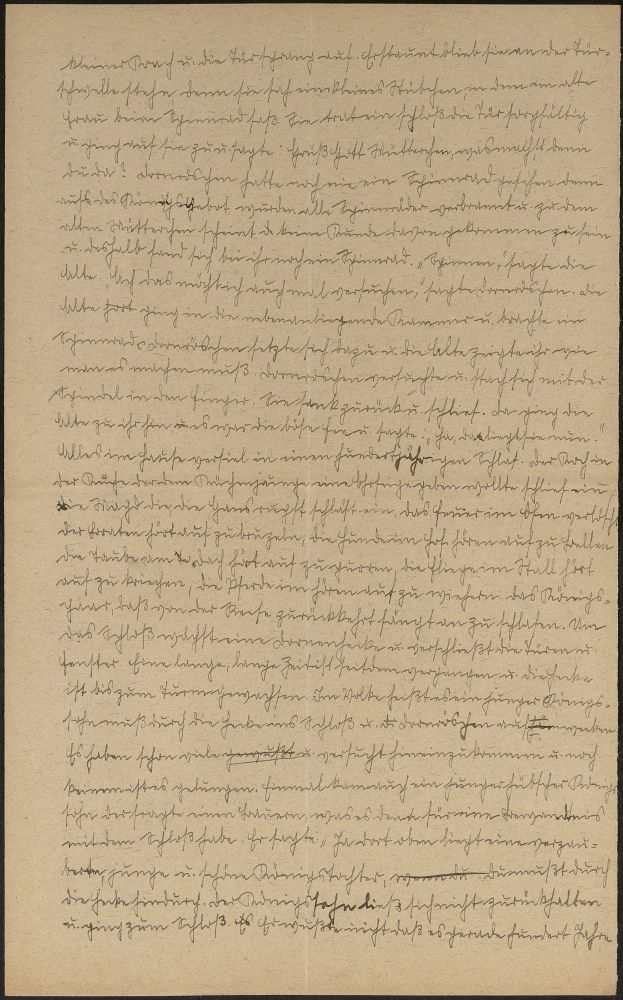 kleiner Krach u. die Tür sprang auf. Erstaunt blieb sie an der Tür=
schwelle stehn, denn sie sah ein kleines Stübchen in dem ein alte
Frau beim Spinnrad saß. Sie trat ein schloß die Tür sorgfältig
u. ging auf sie zu u. sagte: Grüß Gott Mütterchen, was machst denn
du da? Dornröschen hatte noch nie ein Spinnrad gesehen denn
aufs des Königs Gebot wurden alle Spinnräder verbrannt u. zu dem
alten Mütterchen scheint da keine Kunde davon gekommen zu sein
u. deshalb fand sich bei ihr noch ein Spinnrad. „Spinnen," sagte die
Alte. „Ach das möchte ich auch mal versuchen," sagte Dornröschen. Die
Alte ging in die nebenanliegende Kammer u. brachte ein
Spinnrad. Dornröschen setzte sich dazu u. die Alte zeigte ihr wie
man es machen muß. Dornröschen versuchte u. stach sich mit der
Spindel in den Finger. Sie sank zurück u. schlief. Da ging die
Alte zu ihr hin u. es war die böse Fee u. sagte: „Ha, da liegt sie nun."
Alles im Hause verfiel in einen hundertjährigen Schlaf. Der Koch in
der Küche der dem Küchenjunge eine Ohrfeige geben wollte schlief ein,
die Magd die, die Gans rupft schläft ein, das Feuer im Ofen verlöscht
der Braten hört auf zu bruzeln, die Hunde im Hof hören auf zu bellen
die Taube am Dach hört auf zu gurren, die Fliege im Stall hört
auf zu kriechen, die Pferde im hören auf zu wiehern. Das Königs=
paar, daß von der Reise zurückkehrt fängt an zu schlafen. Um
das Schloß wächst eine Dornenhecke u. verschließt die Türen u.
Fenster. Eine lange, lange Zeit ist seitdem vergangen u. die Hecke
ist bis zum Turm gewachsen. Im Volke heißt es ein junger Königs-
sohn muß durch die Hecke ins Schloß u. Dornröschen aufwecken
Es haben schon viele gewußt u. versucht hineinzukommen u. noch
keinem ist es gelungen. Einmal kam auch ein junger hübscher Königs
sohn der fragte einen Bauern, was es denn für eine Bewandtnis
mit dem Schloß habe. Er sagte: „Ja dort oben liegt eine verzau=
berte, junge u. schöne Königstochter, wenn du du mußt durch
die Hecke hindurch. Der Königssohn ließ sich nicht zurückhalten
u. ging zum Schloß. Es Er wußte nicht daß es gerade hundert Jahre